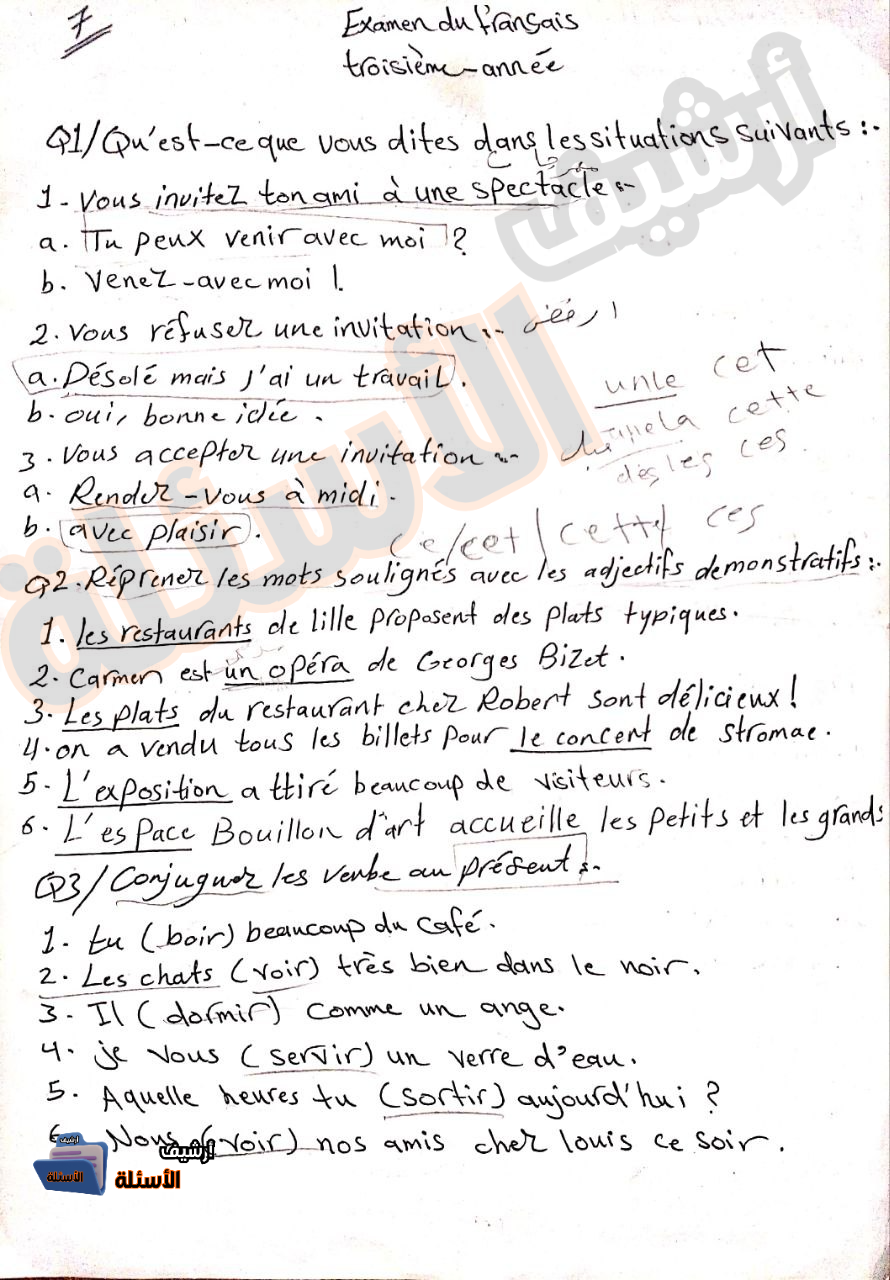 7
Examen du français
troisième-année
Q1/ Qu'est-ce que vous dites dans les situations suivants :-
1- Vous invitez ton ami à une spectacle :-
a. Tu peux venir avec moi ?
b. Venez-avec moi !
2. Vous réfuser une invitation :- ارفض
a. Désolé mais j'ai un travail.
un le cet
b. oui, bonne idée.
la cette
3. Vous accepter une invitation :-
des les ces
a. Render-vous à midi.
b. avec plaisir.
ce/cet/cette/ces
Q2. Réprener les mots soulignés avec les adjectifs demonstratifs :-
1. les restaurants de lille proposent des plats typiques.
2. Carmen est un opéra de Georges Bizet.
3. Les plats du restaurant cher Robert sont délicieux !
4. on a vendu tous les billets pour le concent de stromae.
5. L'exposition a attiré beaucoup de visiteurs.
6. L'espace Bouillon d'art accueille les petits et les grands
Q3/ Conjuguer les verbe au présent :-
1. tu (boir) beaucoup du café.
2. Les chats (voir) très bien dans le noir.
3. Il (dormir) comme un ange.
4. je vous (servir) un verre d'eau.
5. Aquelle heures tu (sortir) aujourd'hui ?
6. Nous (voir) nos amis cher louis ce soir.
أرشيف الأسئلة
أرشيف
الأسئلة
أرشيف
الأسئلة